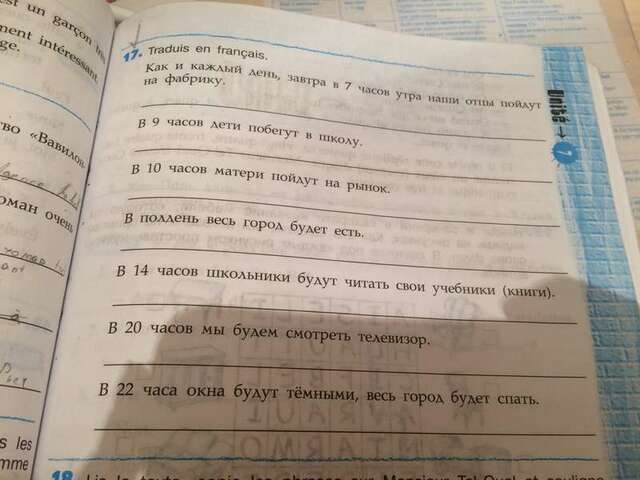 est un garçon
ment intéressant
ge.
тво «Вавилон-
оман очень
17. Traduis en français.
Как и каждый день, завтра в 7 часов утра наши отцы пойдут
на фабрику.
В 9 часов дети побегут в школу.
В 10 часов матери пойдут на рынок.
В полдень весь город будет есть.
В 14 часов школьники будут читать свои учебники (книги).
В 20 часов мы будем смотреть телевизор.
В 22 часа окна будут тёмными, весь город будет спать.
s les
omme
18. Lis le texte, copie les phrases sur Monsieur Tel Quel et souligne
Unité → 7